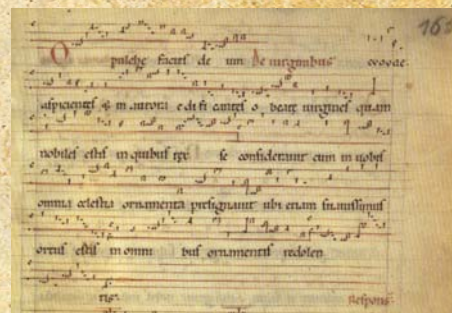 O pulchre facies de um De uirginibus euouae
aspicientes & in aurora edificantes o beate uirgines quam
nobiles estis in quibus rex se considerauit cum in uobis
omnia celestia ornamenta presignauit ubi etiam suauissimus
ortus estis in omni bus ornamentis redolen
tes. Respons